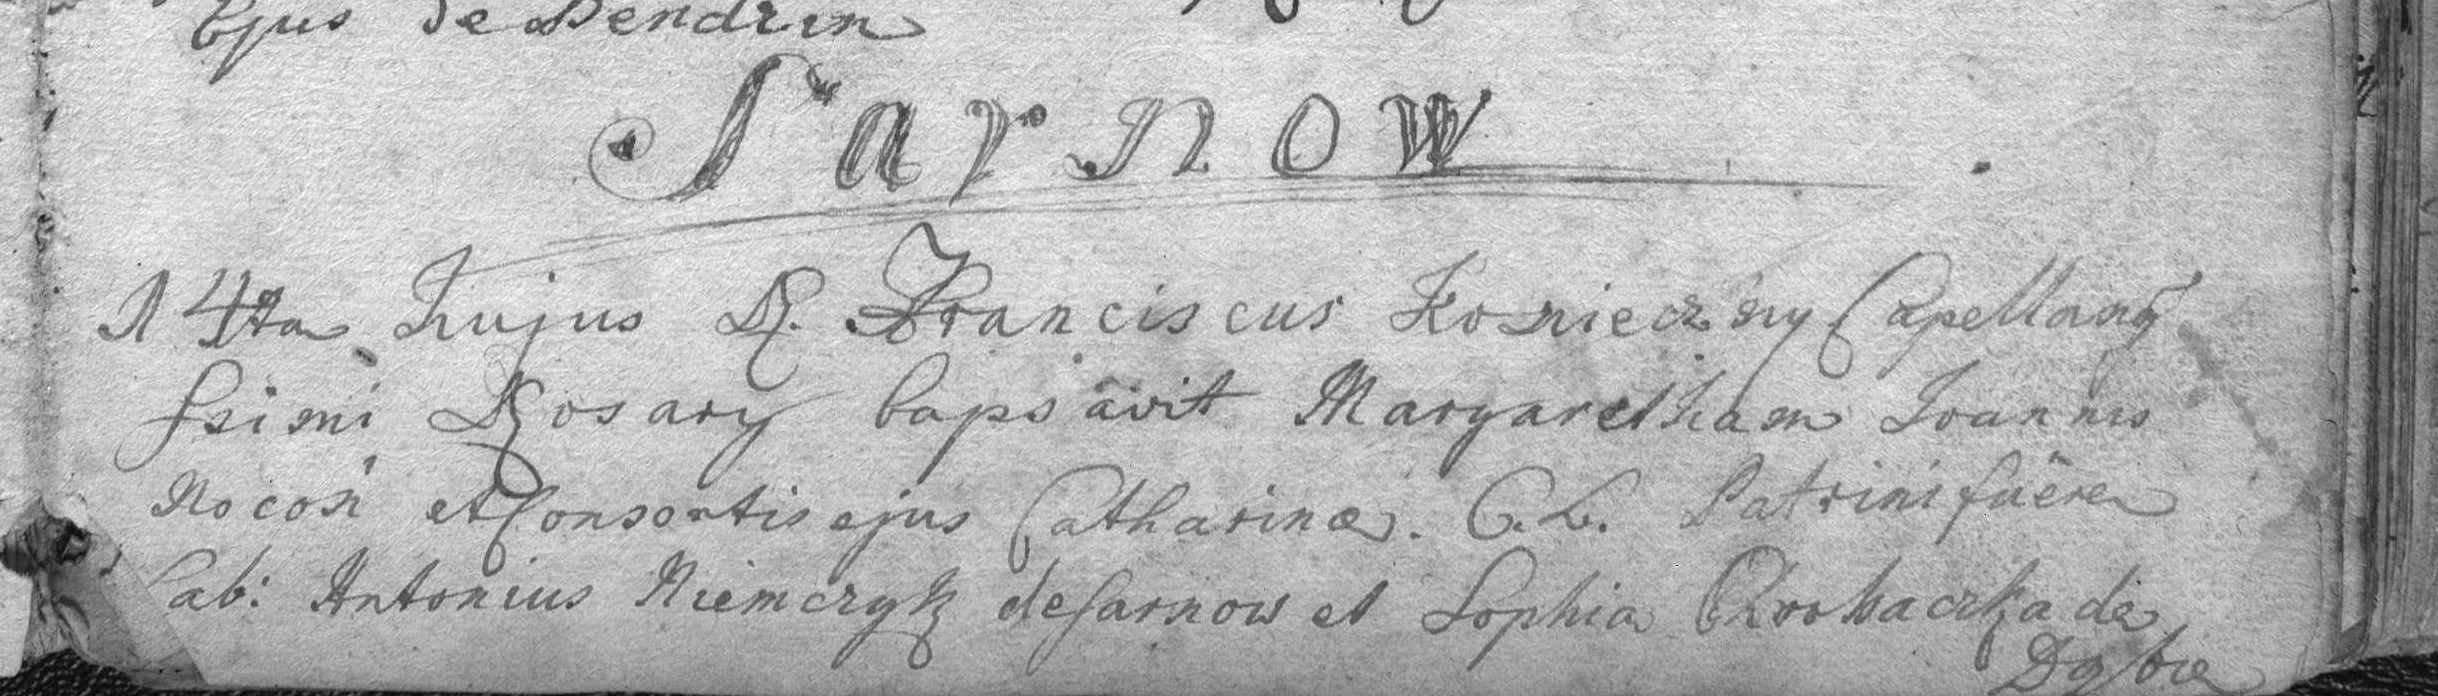 Ejus de Bendzin
Sarnow
14ta hujus R. Franciscus Koznieczny Capellanus
ssimi Rosary bapsavit Margaretham Joannis
Nocoń et Consortis ejus Catharinæ. C. L. Patrini fuere
Lab: Antonius Niemczyk de Sarnow et Sophia Chrobaczka de